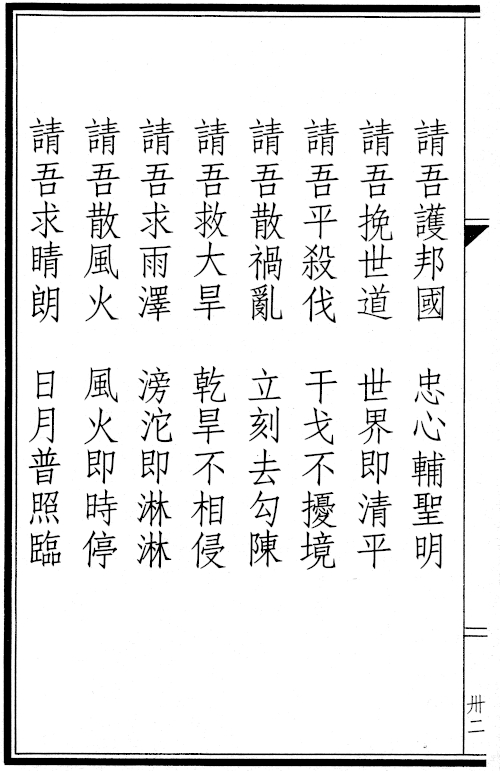 請吾護邦國　忠心輔聖明
請吾挽世道　世界即清平
請吾平殺伐　干戈不擾境
請吾散禍亂　立刻去勾陳
請吾救大旱　乾旱不相侵
請吾求雨澤　滂沱即淋淋
請吾散風火　風火即時停
請吾求晴朗　日月普照臨
卅二